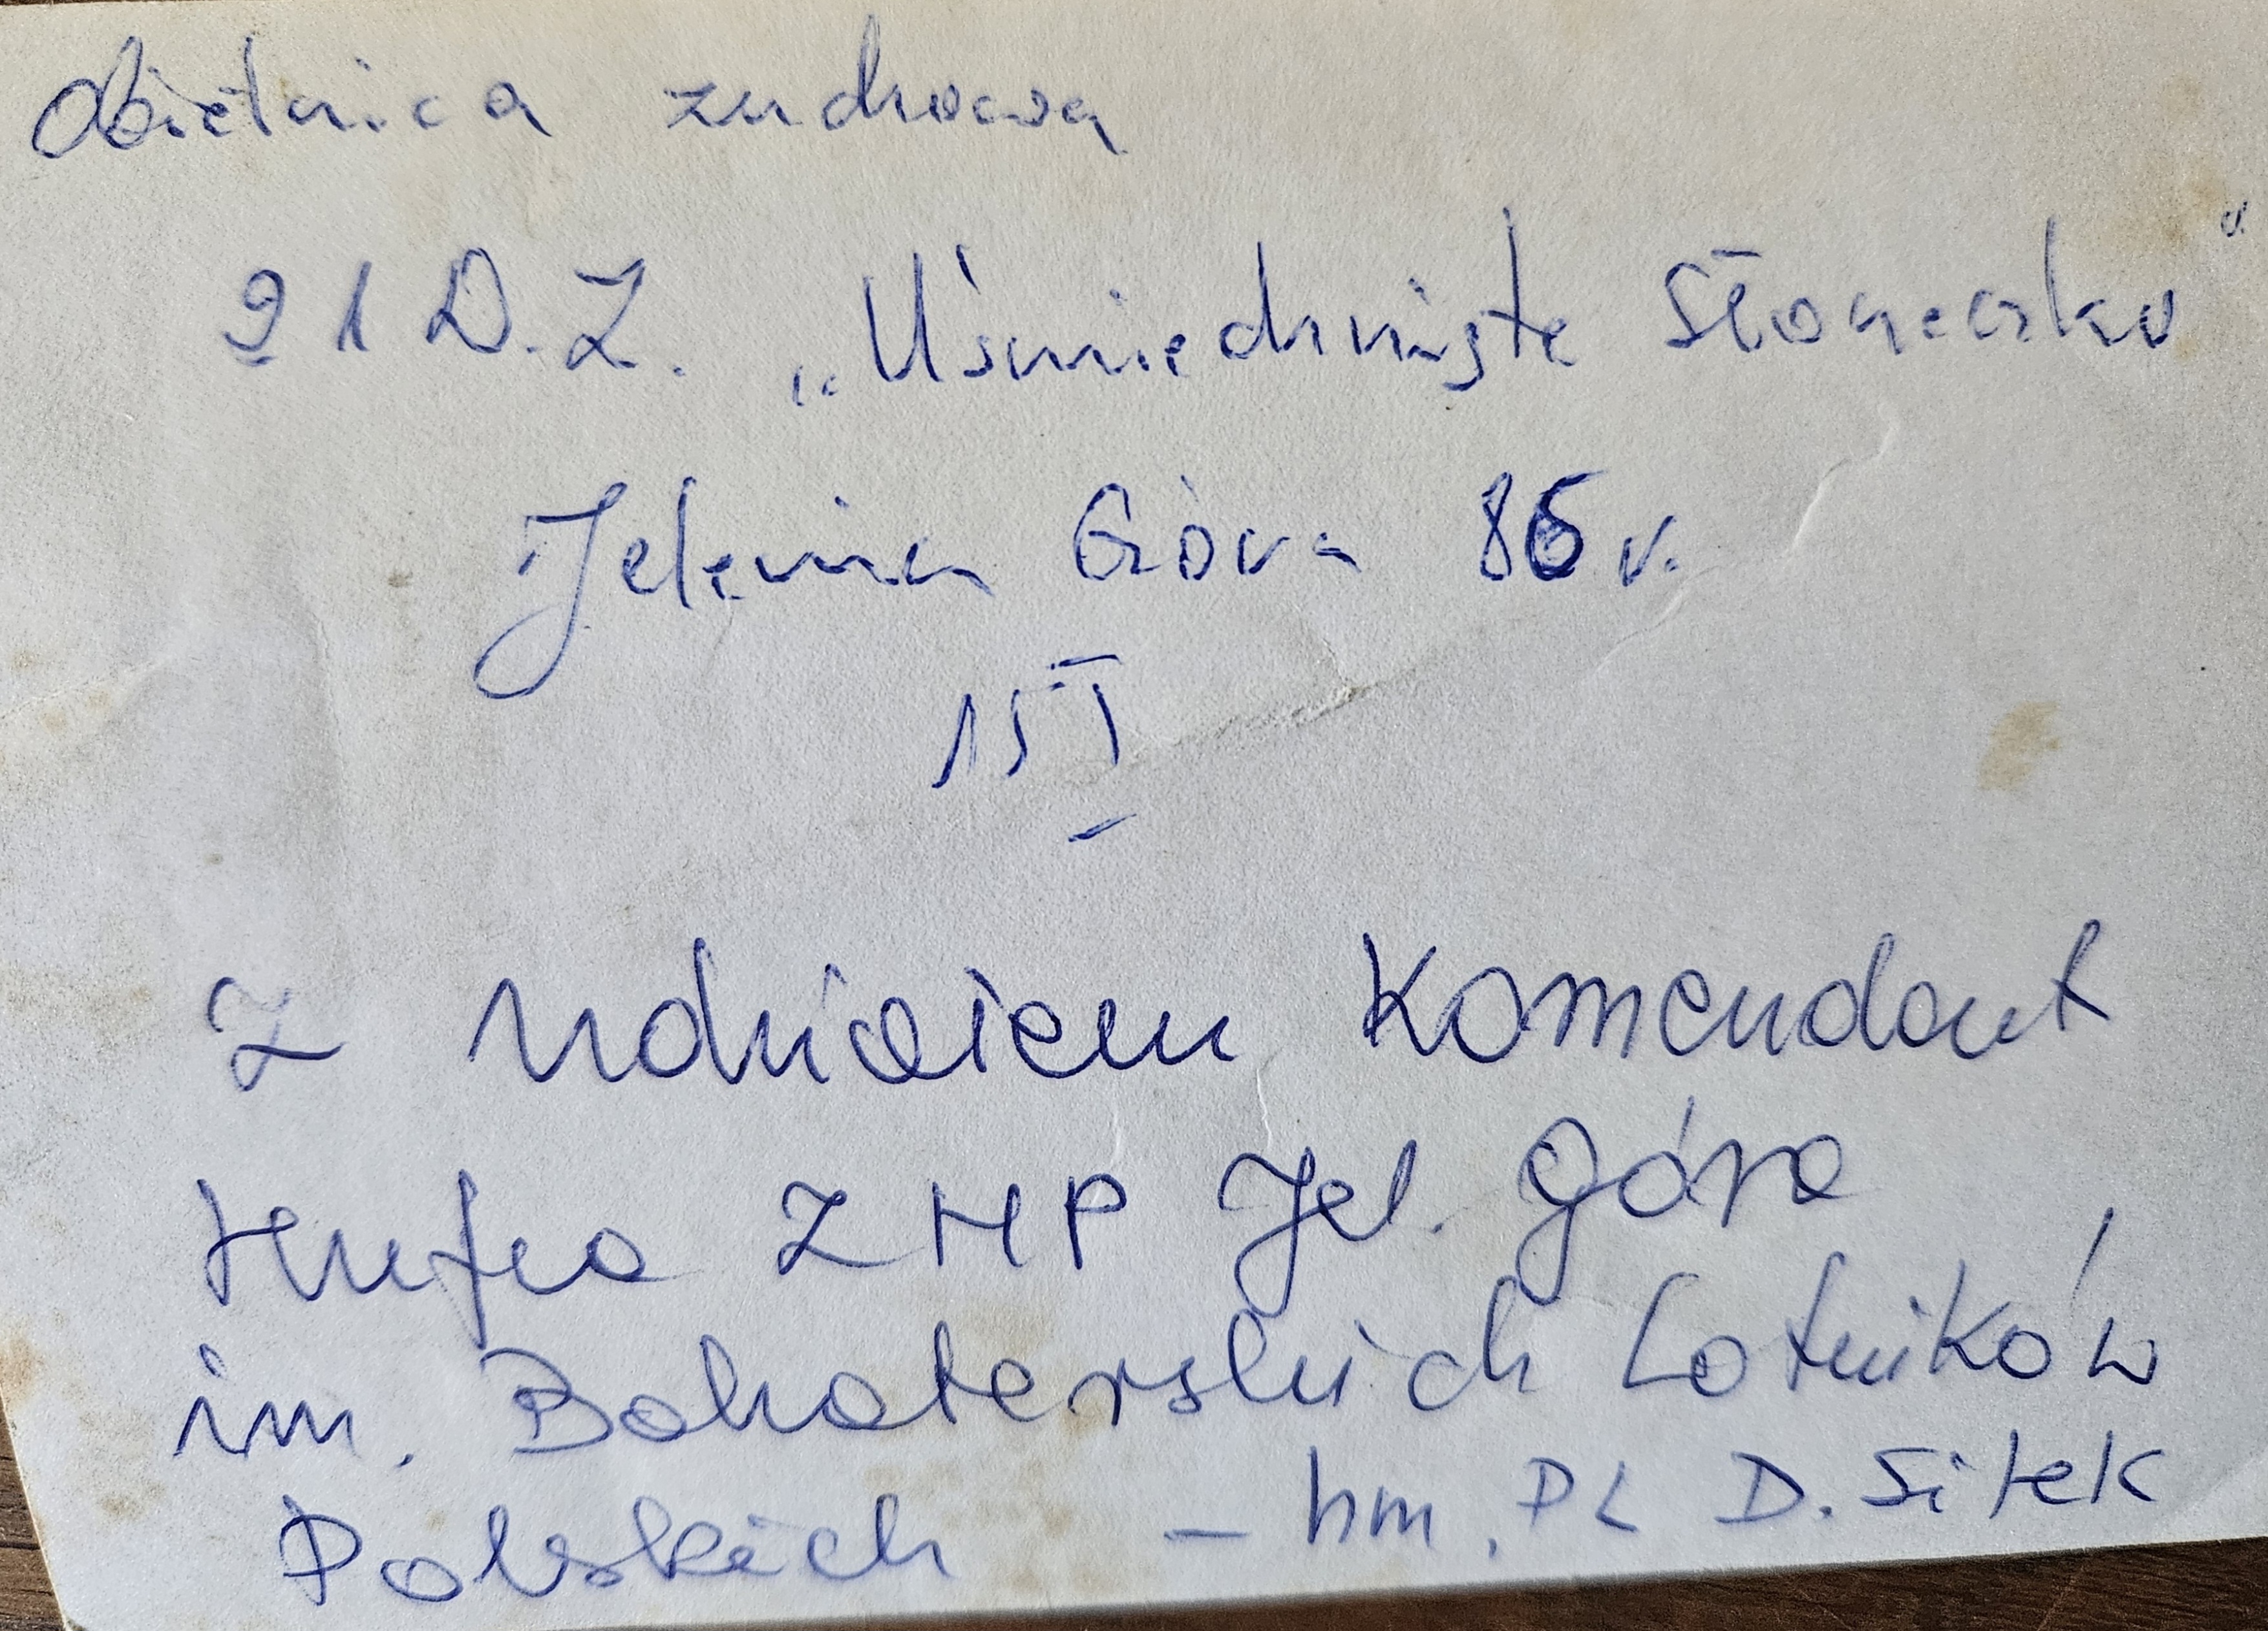 Obietnica zuchowa
21 D.Z. „Uśmiechnięte Słoneczko"
Jelenia Góra 86 r.
15 I
Z udziałem Komendant
Hufca ZHP Jel. Góra
im. Bohaterskich Lotników
Polskich – hm. PL D. Sitek